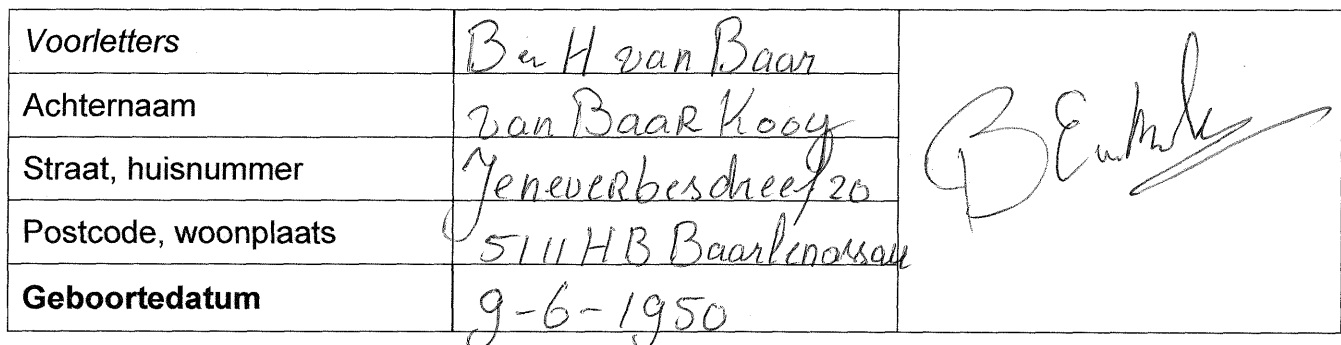 Voorletters B en H van Baar
Achternaam van BaaR Kooy
Straat, huisnummer JeneveRbesdreef 20
Postcode, woonplaats 5111 HB Baarlenassau
Geboortedatum 9-6-1950